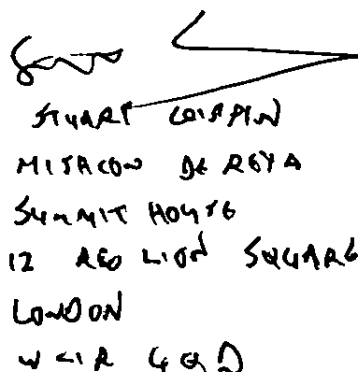 STUART CRIPPIN
MISHCON DE REYA
SUMMIT HOUSE
12 RED LION SQUARE
LONDON
WC1R 4QD